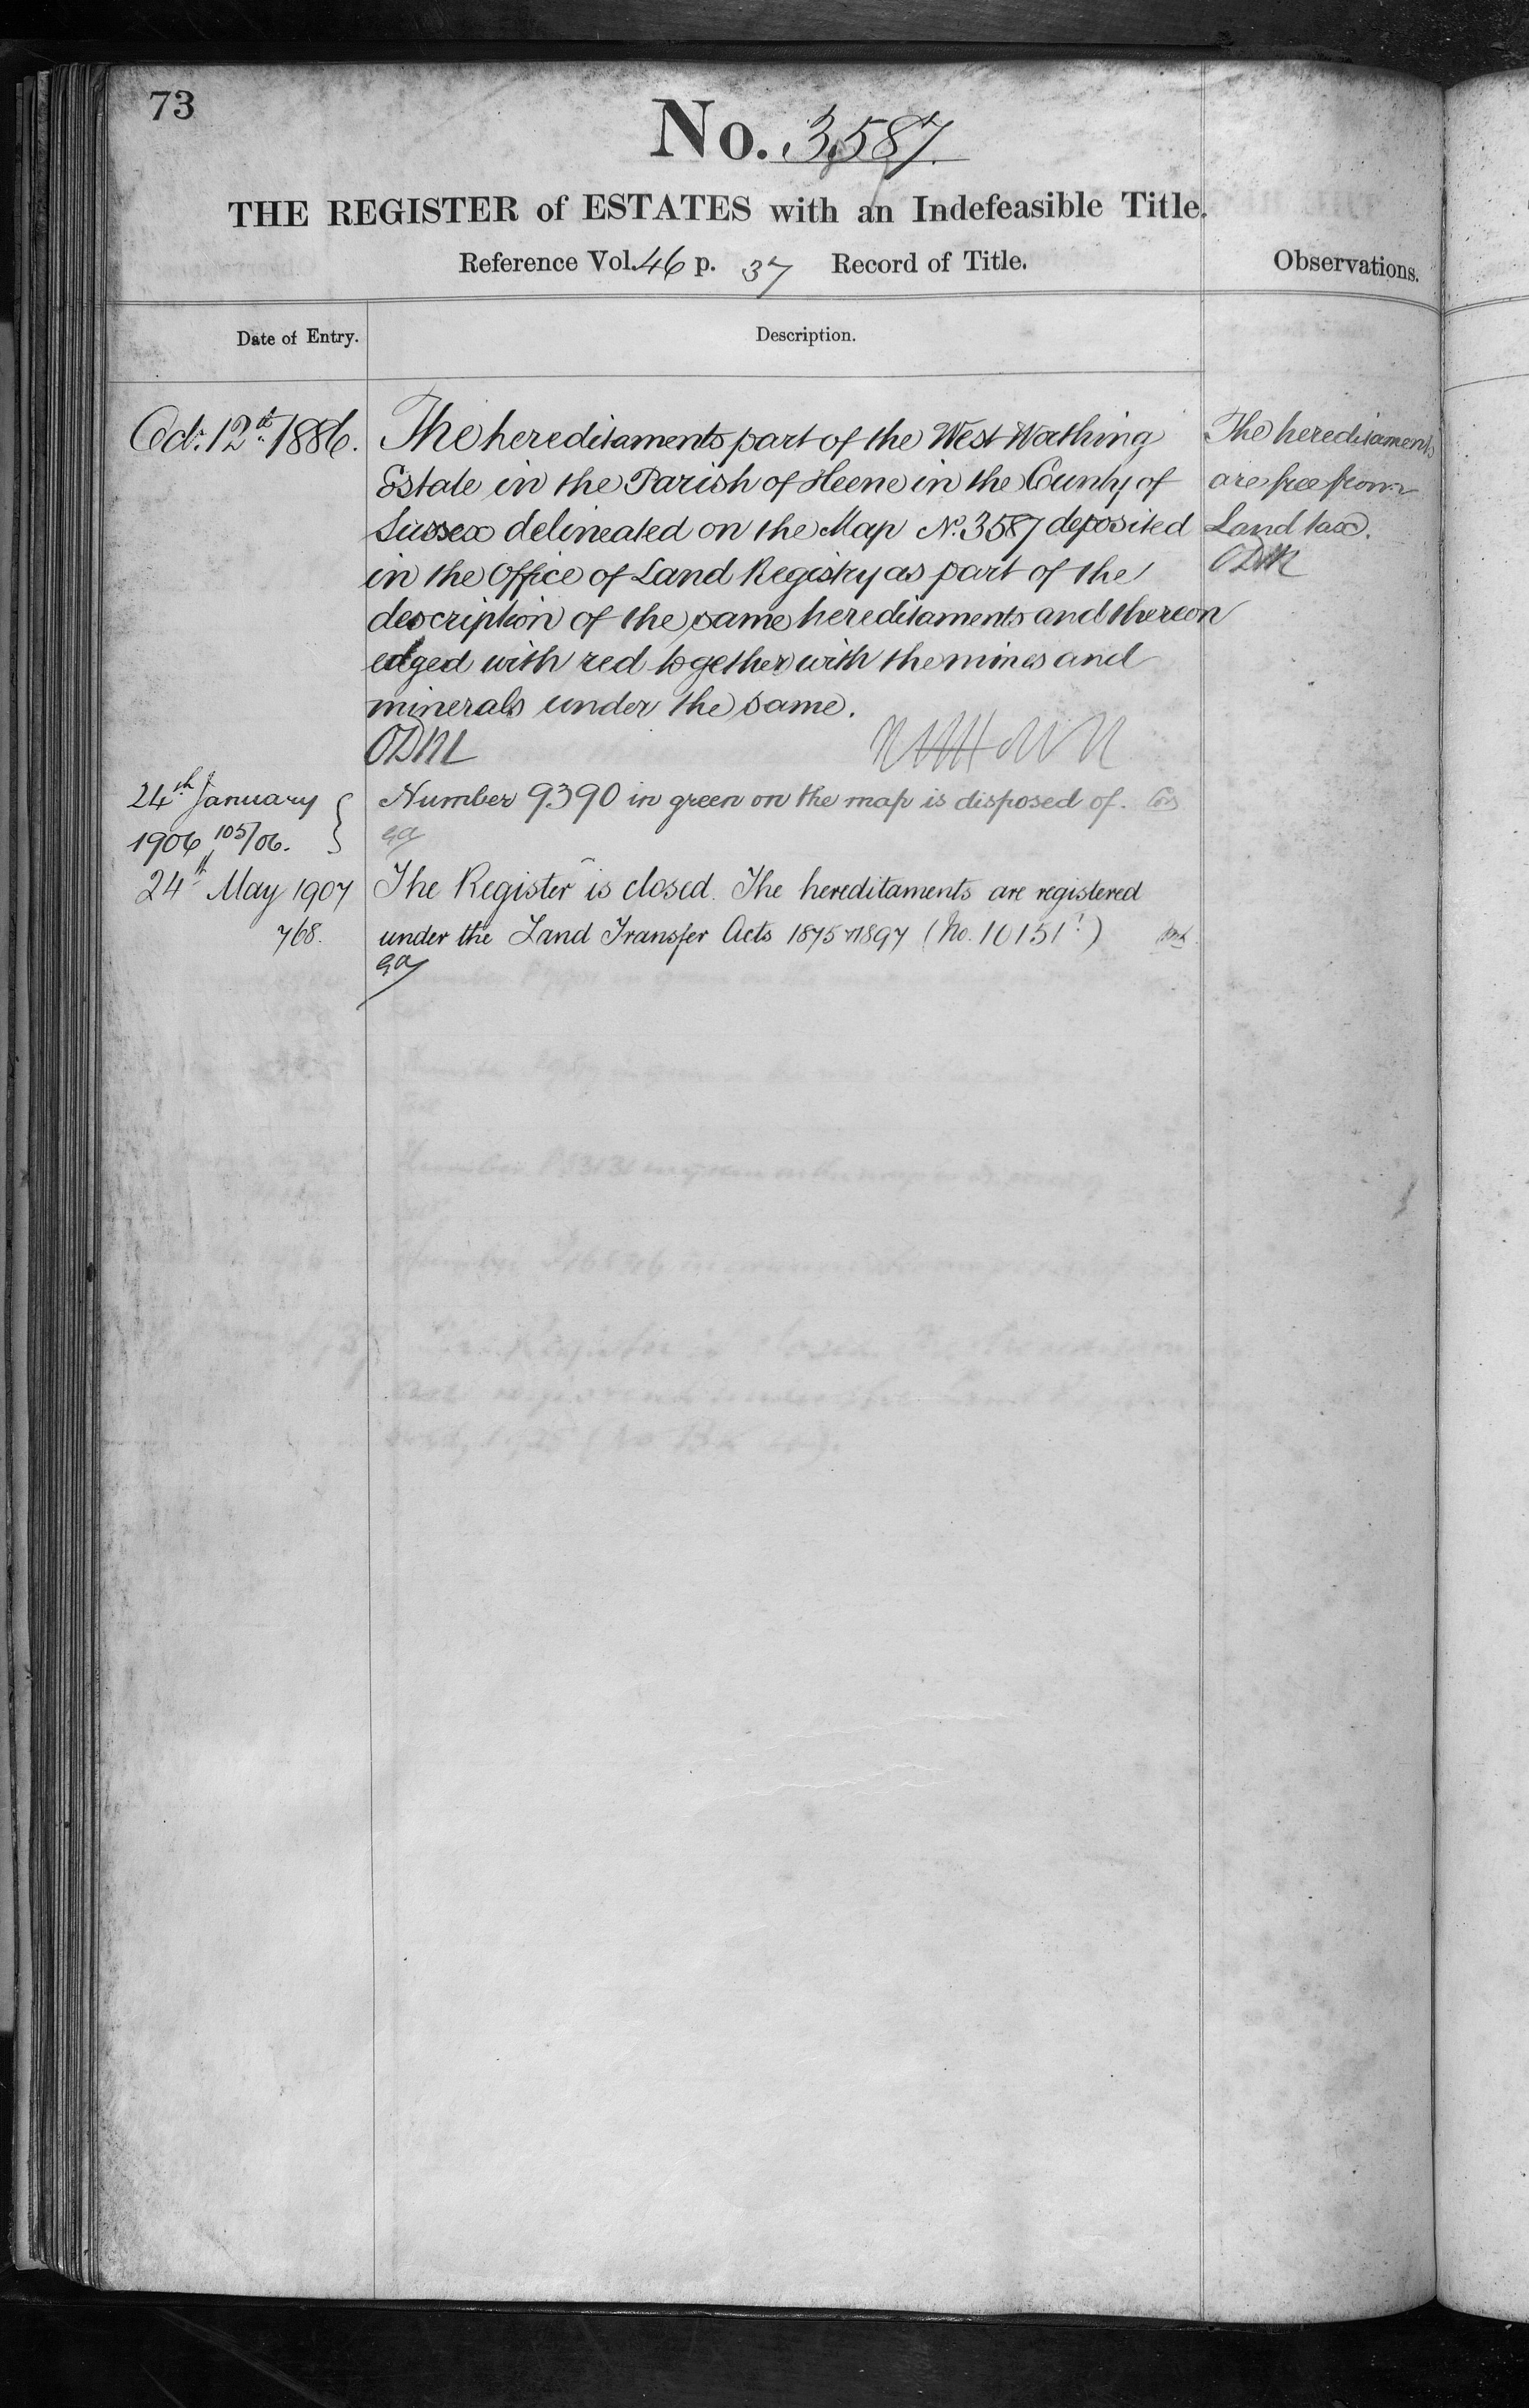 73
No. 3,587.
THE REGISTER of ESTATES with an Indefeasible Title.
Reference Vol. 46 p. 37 Record of Title.
Observations.
Date of Entry.
Description.
Oct: 12th 1886.
The hereditaments part of the West Worthing
Estate in the Parish of Heene in the County of
Sussex delineated on the Map No. 3587 deposited
in the Office of Land Registry as part of the
description of the same hereditaments and thereon
edged with red together with the mines and
minerals under the same.
ODM
The hereditaments
are free from
Land tax.
ODM
24th January
1906 105/06.
Number 9390 in green on the map is disposed of.
24th May 1907
768.
The Register is closed. The hereditaments are registered
under the Land Transfer Acts 1875 & 1897 (No. 10151)